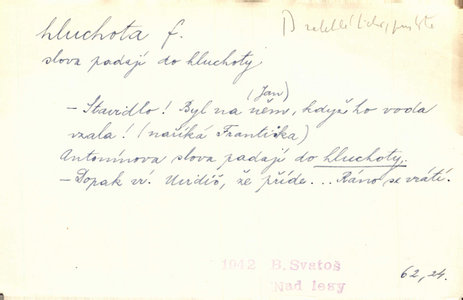 hluchota f.
slova padají do hluchoty
(Jan)
– Stavidlo! Byl na něm, když ho voda
vzala! (naříká Františka)
Antonínova slova padají do hluchoty.
– Copak ví. Uvidíš, že přijde... Ráno se vrátí.
1942 B. Svatoš
Nad lesy
62, 24.